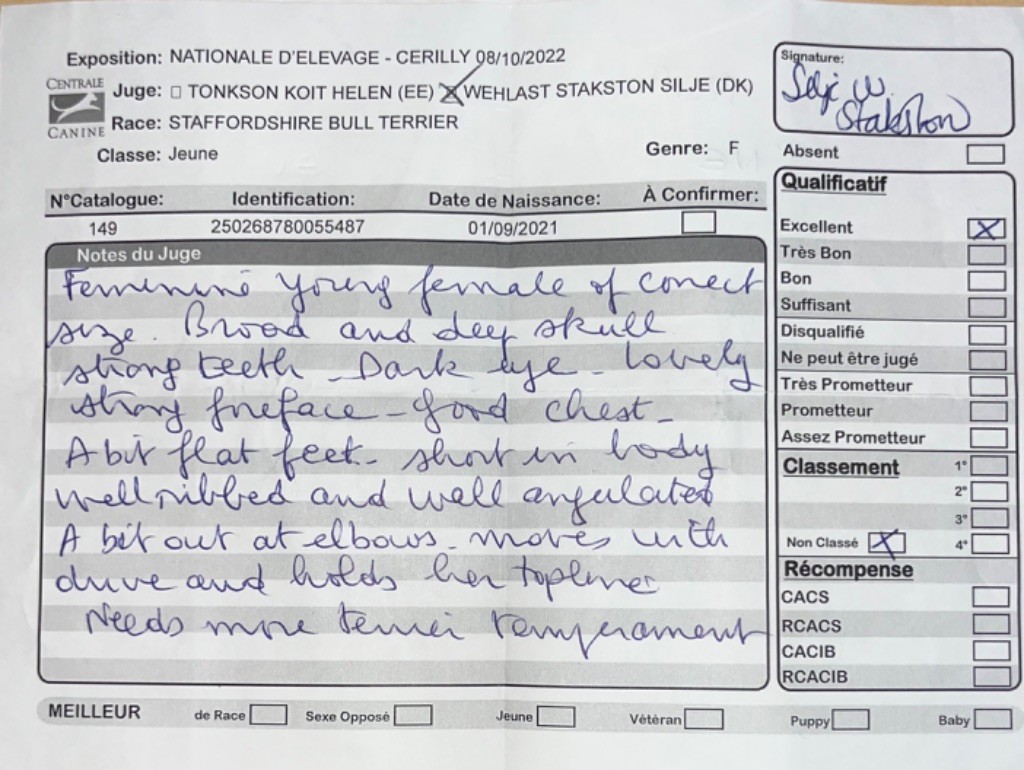 Exposition: NATIONALE D'ELEVAGE - CERILLY 08/10/2022
CENTRALE CANINE
Juge: TONKSON KOIT HELEN (EE) WEHLAST STAKSTON SILJE (DK)
Race: STAFFORDSHIRE BULL TERRIER
Classe: Jeune Genre: F
Signature:
Silje W.
Stakston
N°Catalogue: Identification: Date de Naissance: À Confirmer:
149 250268780055487 01/09/2021
Notes du Juge
Feminine young female of correct
size. Broad and deep skull
strong teeth - Dark eye - lovely
strong foreface - good chest -
A bit flat feet - short in body
well ribbed and well angulated
A bit out at elbows - moves with
drive and holds her topline
Needs more terrier temperament
Absent
Qualificatif
Excellent X
Très Bon
Bon
Suffisant
Disqualifié
Ne peut être jugé
Très Prometteur
Prometteur
Assez Prometteur
Classement 1°
2°
3°
Non Classé X 4°
Récompense
CACS
RCACS
CACIB
RCACIB
MEILLEUR de Race Sexe Opposé Jeune Vétèran Puppy Baby